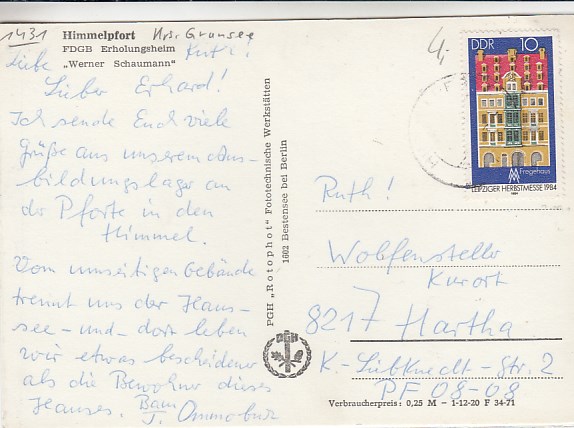 1431 Himmelpfort Krs. Gransee
FDGB Erholungsheim
„Werner Schaumann"
Liebe Ruth!
Lieber Erhard!
Ich sende Euch viele
Grüße aus unserem Aus-
bildungslager an
der Pforte in den
Himmel.
Vom umseitigen Gebäude
trennt uns der Haus-
see - und - dort leben
wir etwas bescheidener
als die Bewohner dieses
Hauses.
PGH „Rotophot" Fototechnische Werkstätten
1602 Bestensee bei Berlin
PGH
4,-
DDR 10
Fregehaus
MM
LEIPZIGER HERBSTMESSE 1984
Ruth!
Kurort
8217 Hartha
K.-Liebknecht-Str. 2
PF 08-08
Verbraucherpreis: 0,25 M - 1-12-20 F 34-71